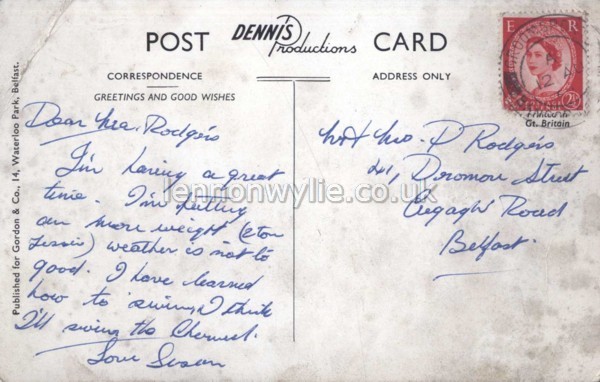 POST DENNIS Productions CARD
CORRESPONDENCE
ADDRESS ONLY
GREETINGS AND GOOD WISHES
E R
2½
Printed in
Gt. Britain
Published for Gordon & Co., 14, Waterloo Park, Belfast.
Dear Mrs. Rodgers
I'm having a great
time. I'm putting
on more weight (
) weather is not to
good. I have learned
how to swim, I think
I'll swim the Channel.
Love Susan
Mr & Mrs. P Rodgers
41, Street
Cregagh Road
Belfast.
lennonwylie.co.uk